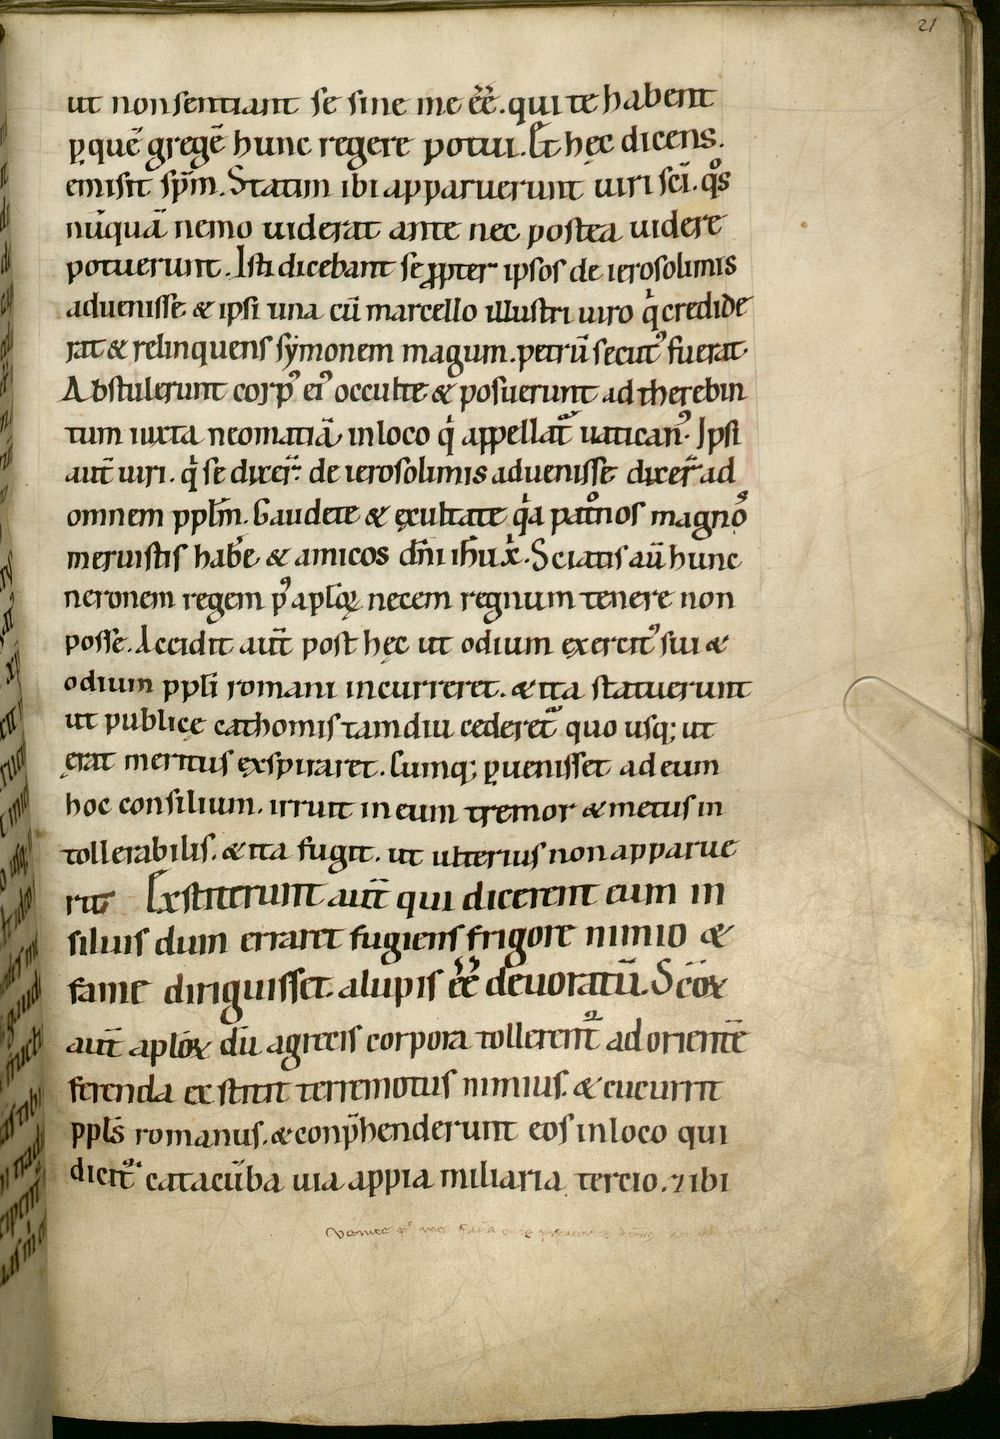 21
ut non sentiant se sine me eẽ. qui te habent
ꝑ quẽ gregẽ hunc regere potui. Et hęc dicens.
emisit sp̃m. Statim ibi apparuerunt uiri sc̃i. qͦs
nũquã nemo uiderat ante nec postea uidere
potuerunt. Isti dicebant se ꝓpter ipsos de ierosolimis
aduenisse. & ipsi una cũ marcello illustri uiro qͥ credide
rat & relinquens symonem magum. petrũ secutꝰ fuerat.
Abstulerunt corpꝰ eiꝰ occulte & posuerunt ad therebin
tum iuxta neomatiã in loco qͥ appellat᷑ uaticanꝰ. Ipsi
aut̃ uiri. qͥ se dixer̃. de ierosolimis aduenisse. dixer̃ ad
omnem ppl̃m. Gaudete & exultate qͥa patͦnos magnͦs
meruistis habe̓ & amicos dñi ih̃u xͥ. Sciatis aũ hunc
neronem regem pꝰ apl̃oꝝ necem regnum tenere non
posse. Accidit aut̃ post hęc ut odium exercitꝰ sui &
odium ppl̃i romani incurreret. & ita statuerunt
ut publicę cathomis tam diu cederet᷑ quo usq; ut
erat meritus exspiraret. Cumq; ꝑuenisset ad eum
hoc consilium. irruit in eum tremor & metus in
tollerabilis. & ita fugit. ut ulterius non apparue
rit. Extiterunt aut̃ qui dicerent eum in
siluis dum erraret fugiens frigore nimio &
fame diriguisset. a lupis eẽ deuoratũ. Sc̃oꝝ
aut̃ apl̃oꝝ dũ a grecis corpora tollerent᷑ ad orientẽ
ferenda extitit terremotus nimius. & cucurrit
ppl̃s romanus. & conp̃henderunt eos in loco qui
dicit᷑ catacũba uia appia miliaria tercio. ⁊ ibi